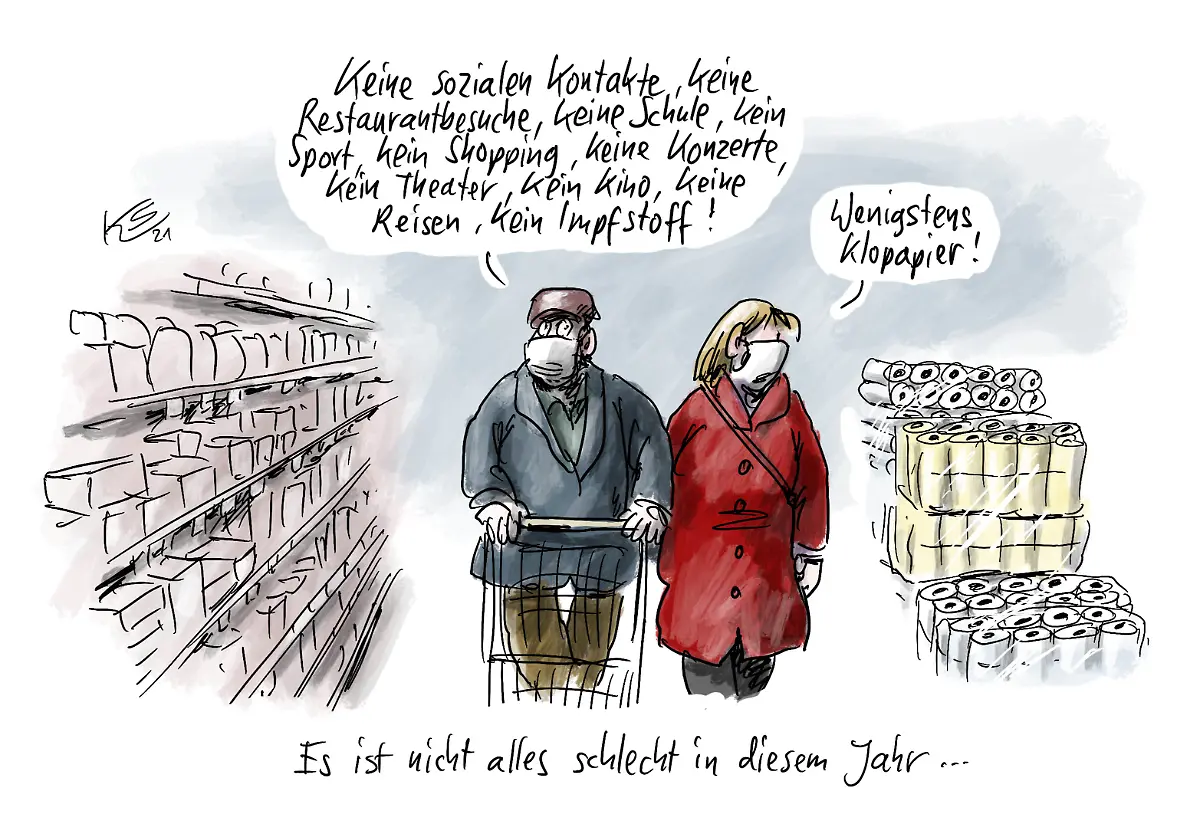 Keine sozialen Kontakte, keine
Restaurantbesuche, keine Schule, kein
Sport, kein Shopping, keine Konzerte,
kein Theater, kein Kino, keine
Reisen, kein Impfstoff!
Wenigstens
Klopapier!
21
Es ist nicht alles schlecht in diesem Jahr...